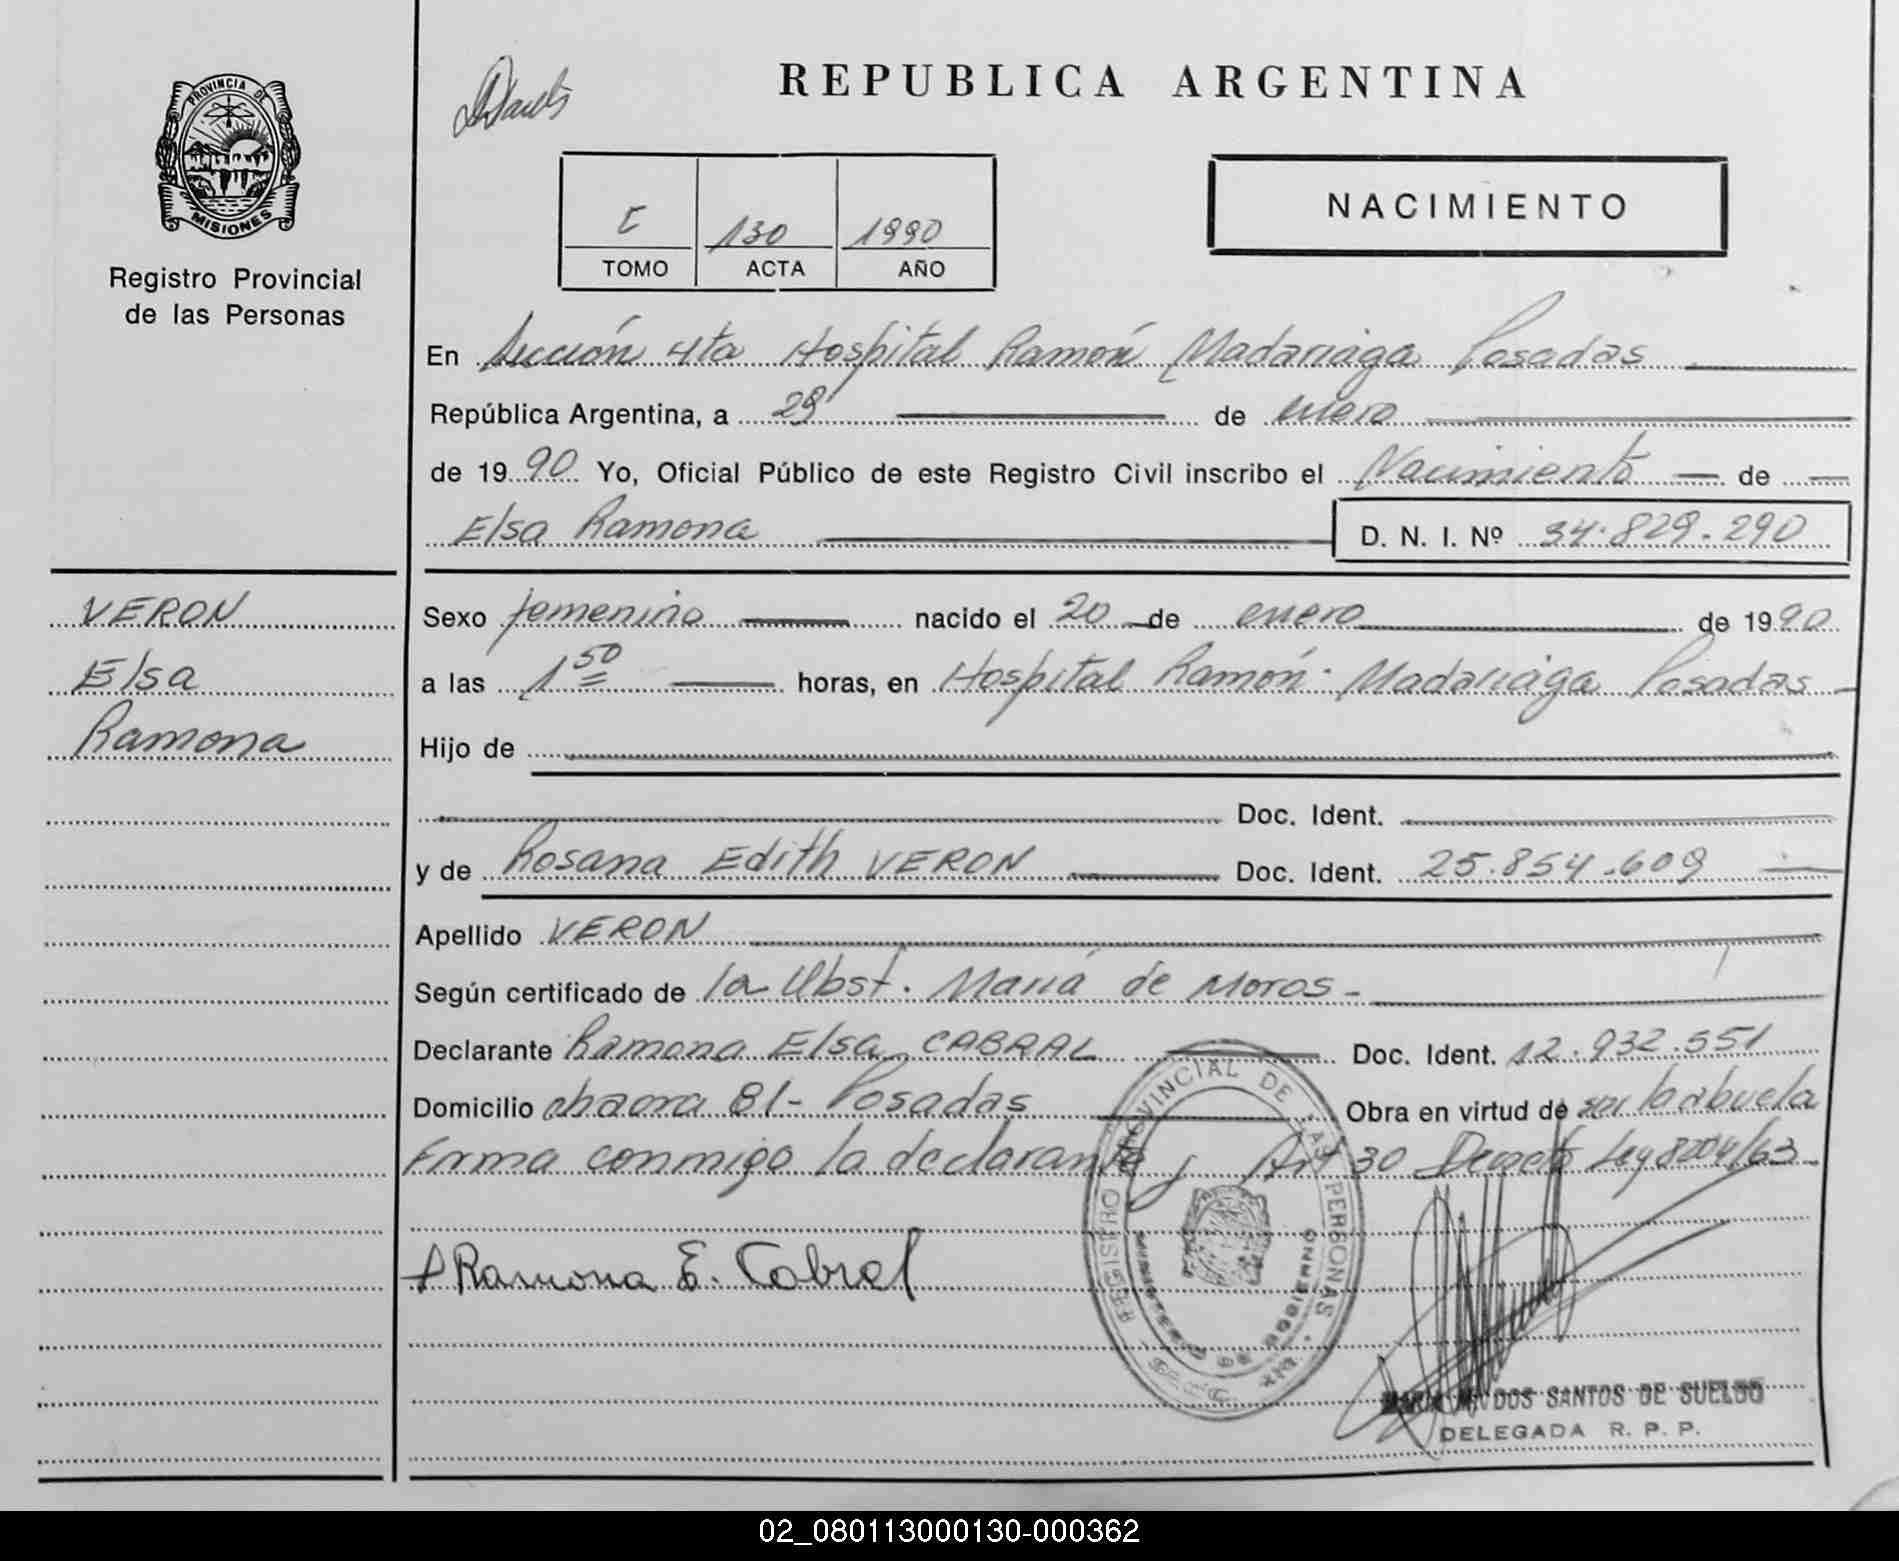 PROVINCIA DE
MISIONES
Registro Provincial
de las Personas
REPUBLICA ARGENTINA
NACIMIENTO
I 130 1990
TOMO ACTA AÑO
En Sección 4ta Hospital Ramón Madariaga Posadas
República Argentina, a 29 de enero
de 1990 Yo, Oficial Público de este Registro Civil inscribo el Nacimiento de
Elsa Ramona D. N. I. Nº 34.829.290
VERON
Elsa
Ramona
Sexo femenino nacido el 20 de enero de 1990
a las 1 50 horas, en Hospital Ramón Madariaga Posadas
Hijo de
Doc. Ident.
y de Rosana Edith VERON Doc. Ident. 25.854.609
Apellido VERON
Según certificado de la Obst. María de Moros
Declarante Ramona Elsa CABRAL Doc. Ident. 12.932.551
Domicilio chacra 81- Posadas Obra en virtud de ser la abuela
Firma conmigo la declarante y Art 30 Decreto Ley 8204/63
Ramona E. Cabral
REGISTRO PROVINCIAL DE LAS PERSONAS
MINISTERIO DE GOBIERNO
DOS SANTOS DE SUELDO
DELEGADA R. P. P.
02_080113000130-000362